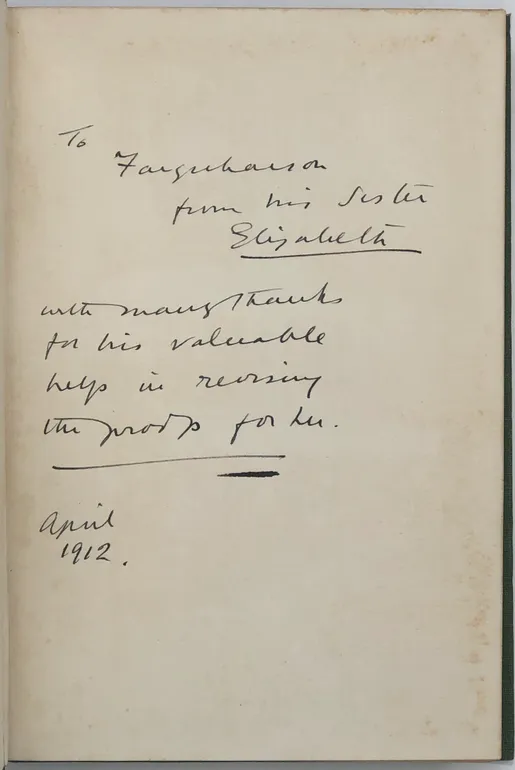 To
Farquharson
from his Sister
Elizabeth
with many thanks
for his valuable
help in revising
the proofs for her.
April
1912.